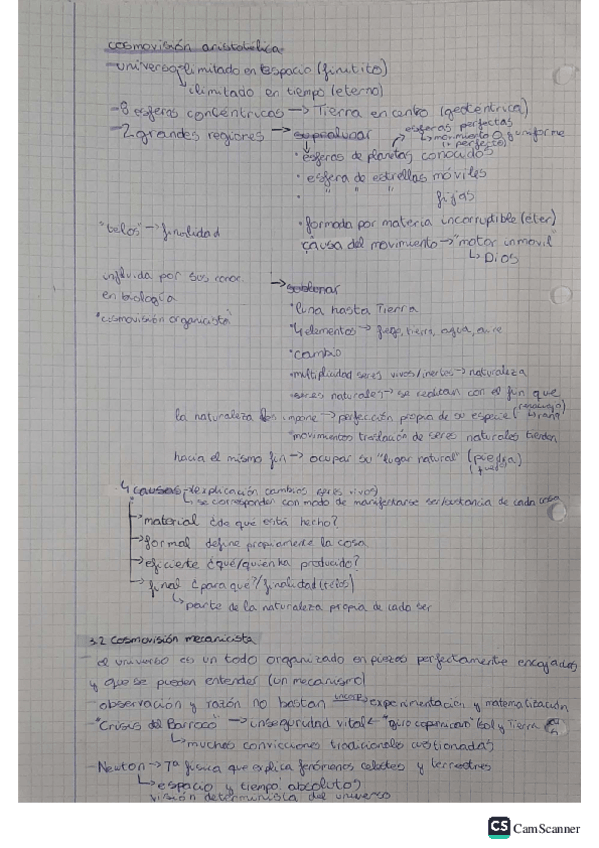 cosmovisión aristotélica
- universo → limitado en espacio (finitito)
↳ ilimitado en tiempo (eterno)
- 8 esferas concéntricas → Tierra en centro (geocéntrica)
- 2 grandes regiones → supralunar
esferas perfectas
↳ movimiento uniforme perfecto)
• esferas de planetas conocidos
• esfera de estrellas móviles
• " " " fijas
"telos" → finalidad
• formada por materia incorruptible (éter)
causa del movimiento → "motor inmovil"
↳ Dios
influida por sus conoc.
en biología
"cosmovisión organicista"
→ sublunar
• luna hasta Tierra
• 4 elementos → fuego, tierra, agua, aire
• cambio
• multiplicidad seres vivos/inertes → naturaleza
• seres naturales → se realizan con el fin que
la naturaleza les impone → perfección propia de su especie (renacuajo → rana)
• movimientos traslación de seres naturales tienden
hacia el mismo fin → ocupar su "lugar natural" (piedra) (fuego)
4 causas → (explicación cambios seres vivos)
↳ se corresponden con modo de manifestarse ser/sustancia de cada cosa
→ material ¿de qué está hecho?
→ formal define propiamente la cosa
→ eficiente ¿qué/quien ha producido?
→ final ¿para qué?/finalidad (télos)
↳ parte de la naturaleza propia de cada ser
3.2 Cosmovisión mecanicista
- el universo es un todo organizado en piezas perfectamente encajadas
y que se pueden entender (un mecanismo)
- observación y razón no bastan → experimentación y matematización
- "Crisis del Barroco" → inseguridad vital ← "giro copernicano" (sol y Tierra
↳ muchas convicciones tradicionales cuestionadas
- Newton → 1ª física que explica fenómenos celestes y terrestres
↳ espacio y tiempo absolutos
visión determinista del universo
CS CamScanner